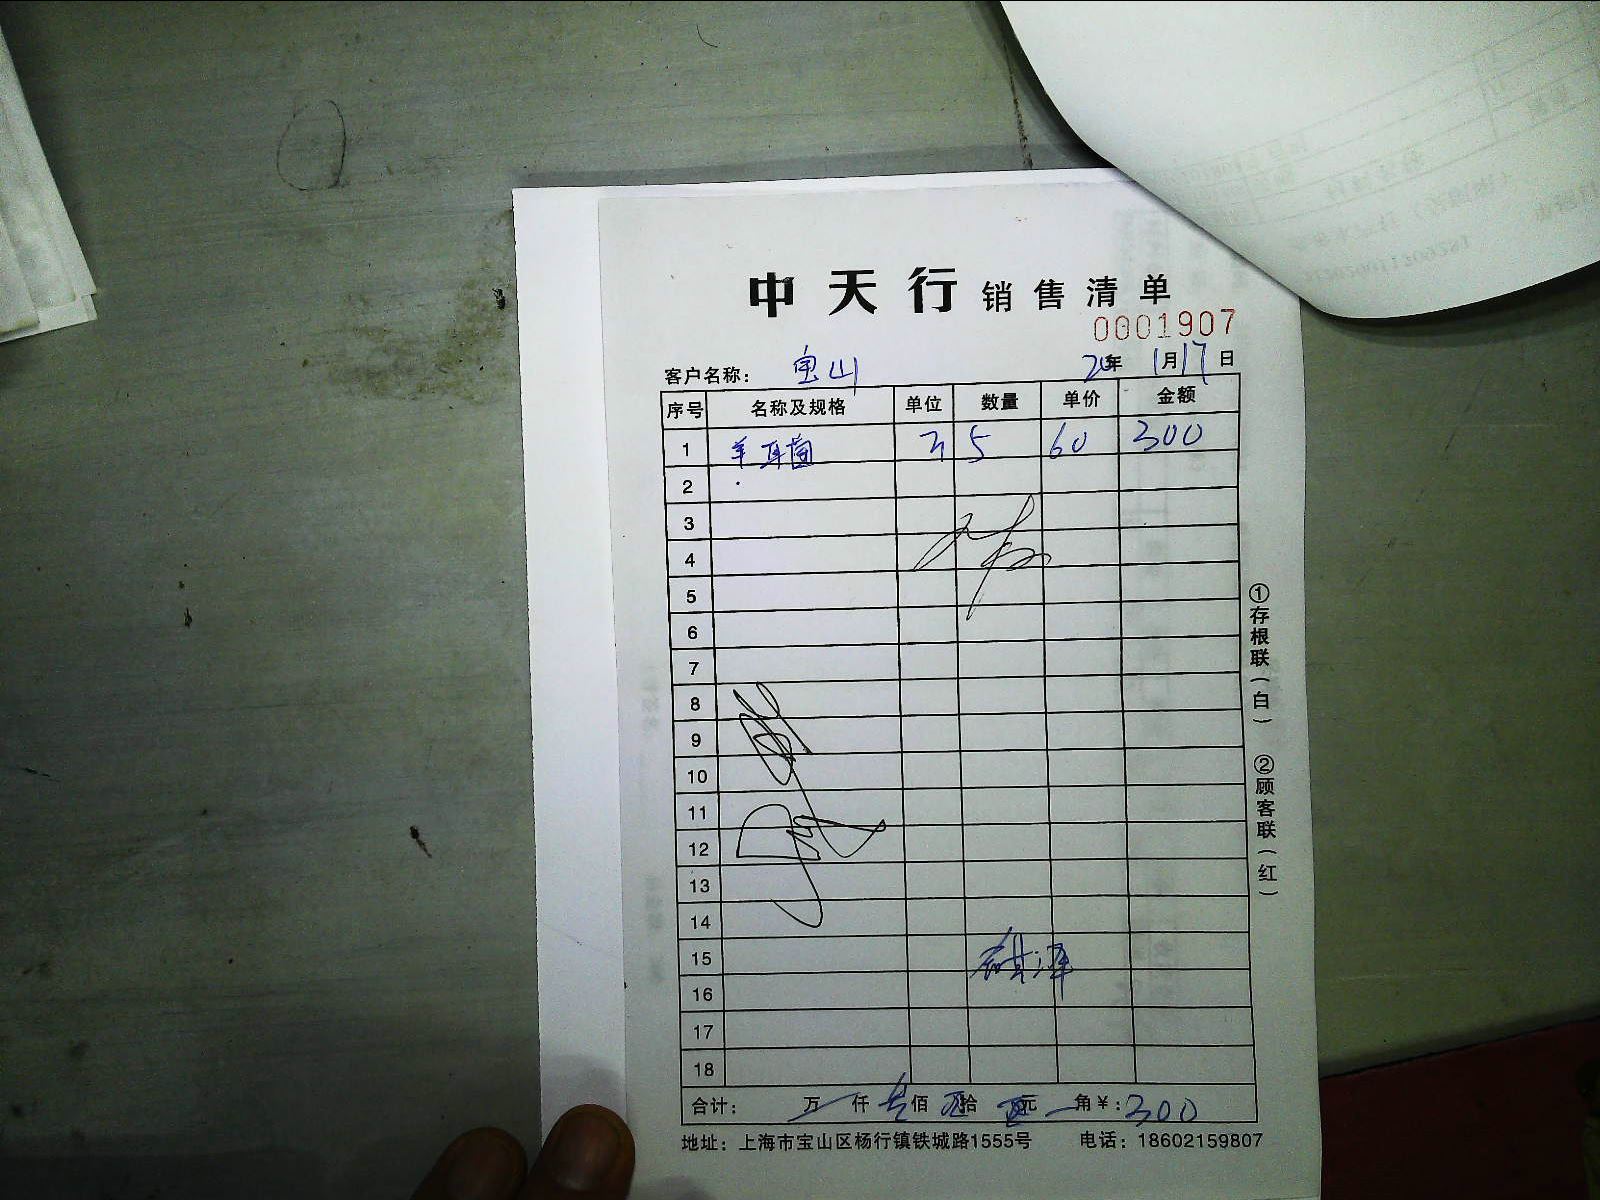 中天行 销售清单
0001907
客户名称: 宝山 20年 1月17日
序号 名称及规格 单位 数量 单价 金额
1 羊耳菌 5 60 300
2
3
4
5
6
7
8
9
10
11
12
13
14
15
16
17
18
合计: 万 仟 叁佰 拾 元 角 ¥:300
地址: 上海市宝山区杨行镇铁城路1555号 电话: 18602159807
①存根联(白) ②顾客联(红)